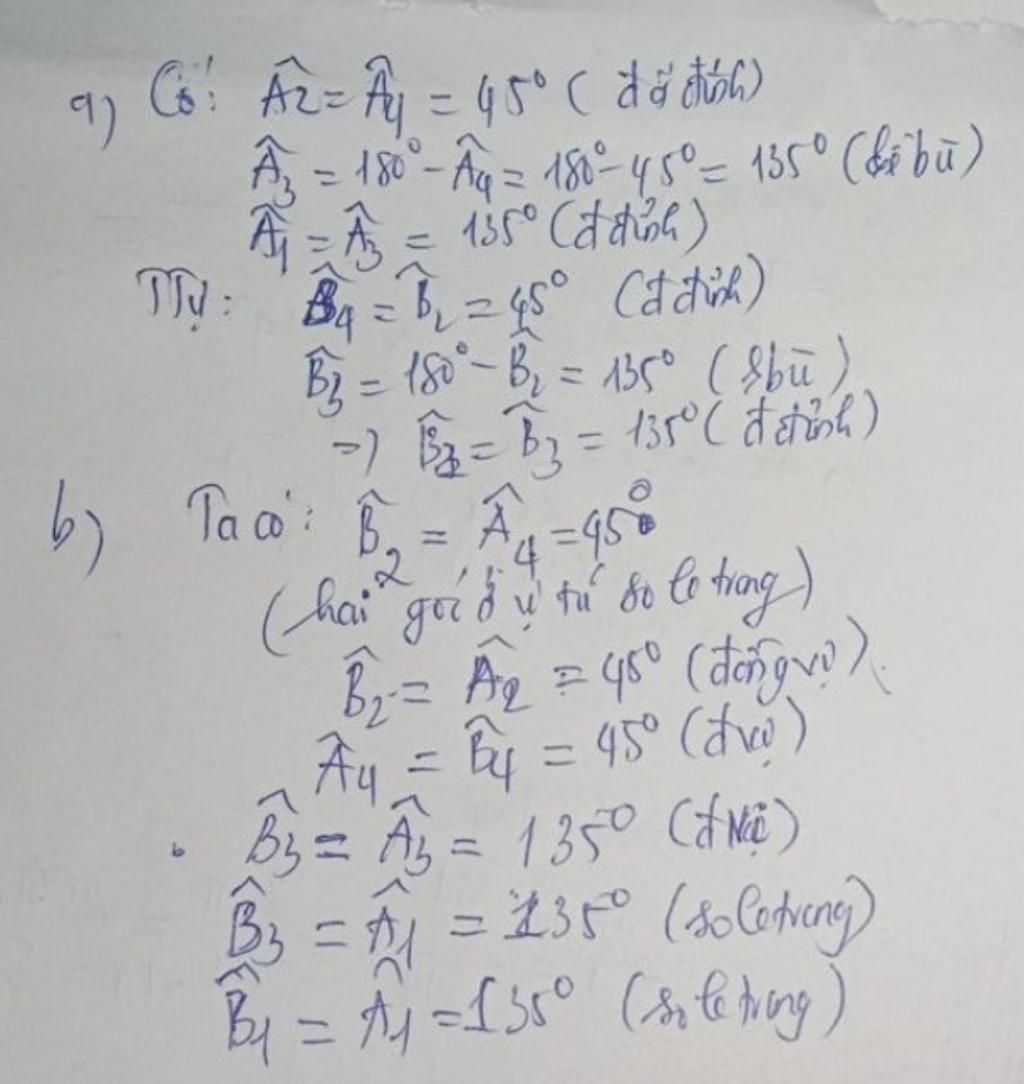 a) Có: Â2 = Â4 = 45° ( đđ đỉnh)
Â3 = 180° - Â4 = 180° - 45° = 135° (kề bù)
Â1 = Â3 = 135° (đ đỉnh)
TTự: B̂4 = B̂2 = 45° (đ đỉnh)
B̂3 = 180° - B̂2 = 135° (bù)
=> B̂1 = B̂3 = 135° ( đ đỉnh)
b) Ta có: B̂2 = Â4 = 45°
(hai góc ở vị trí so le trong)
B̂2 = Â2 = 45° (đồng vị).
Â4 = B̂4 = 45° (đ vị)
. B̂3 = Â3 = 135° (đ vị)
B̂3 = Â1 = 135° (so le trong)
B̂1 = Â1 = 135° (so le trong)